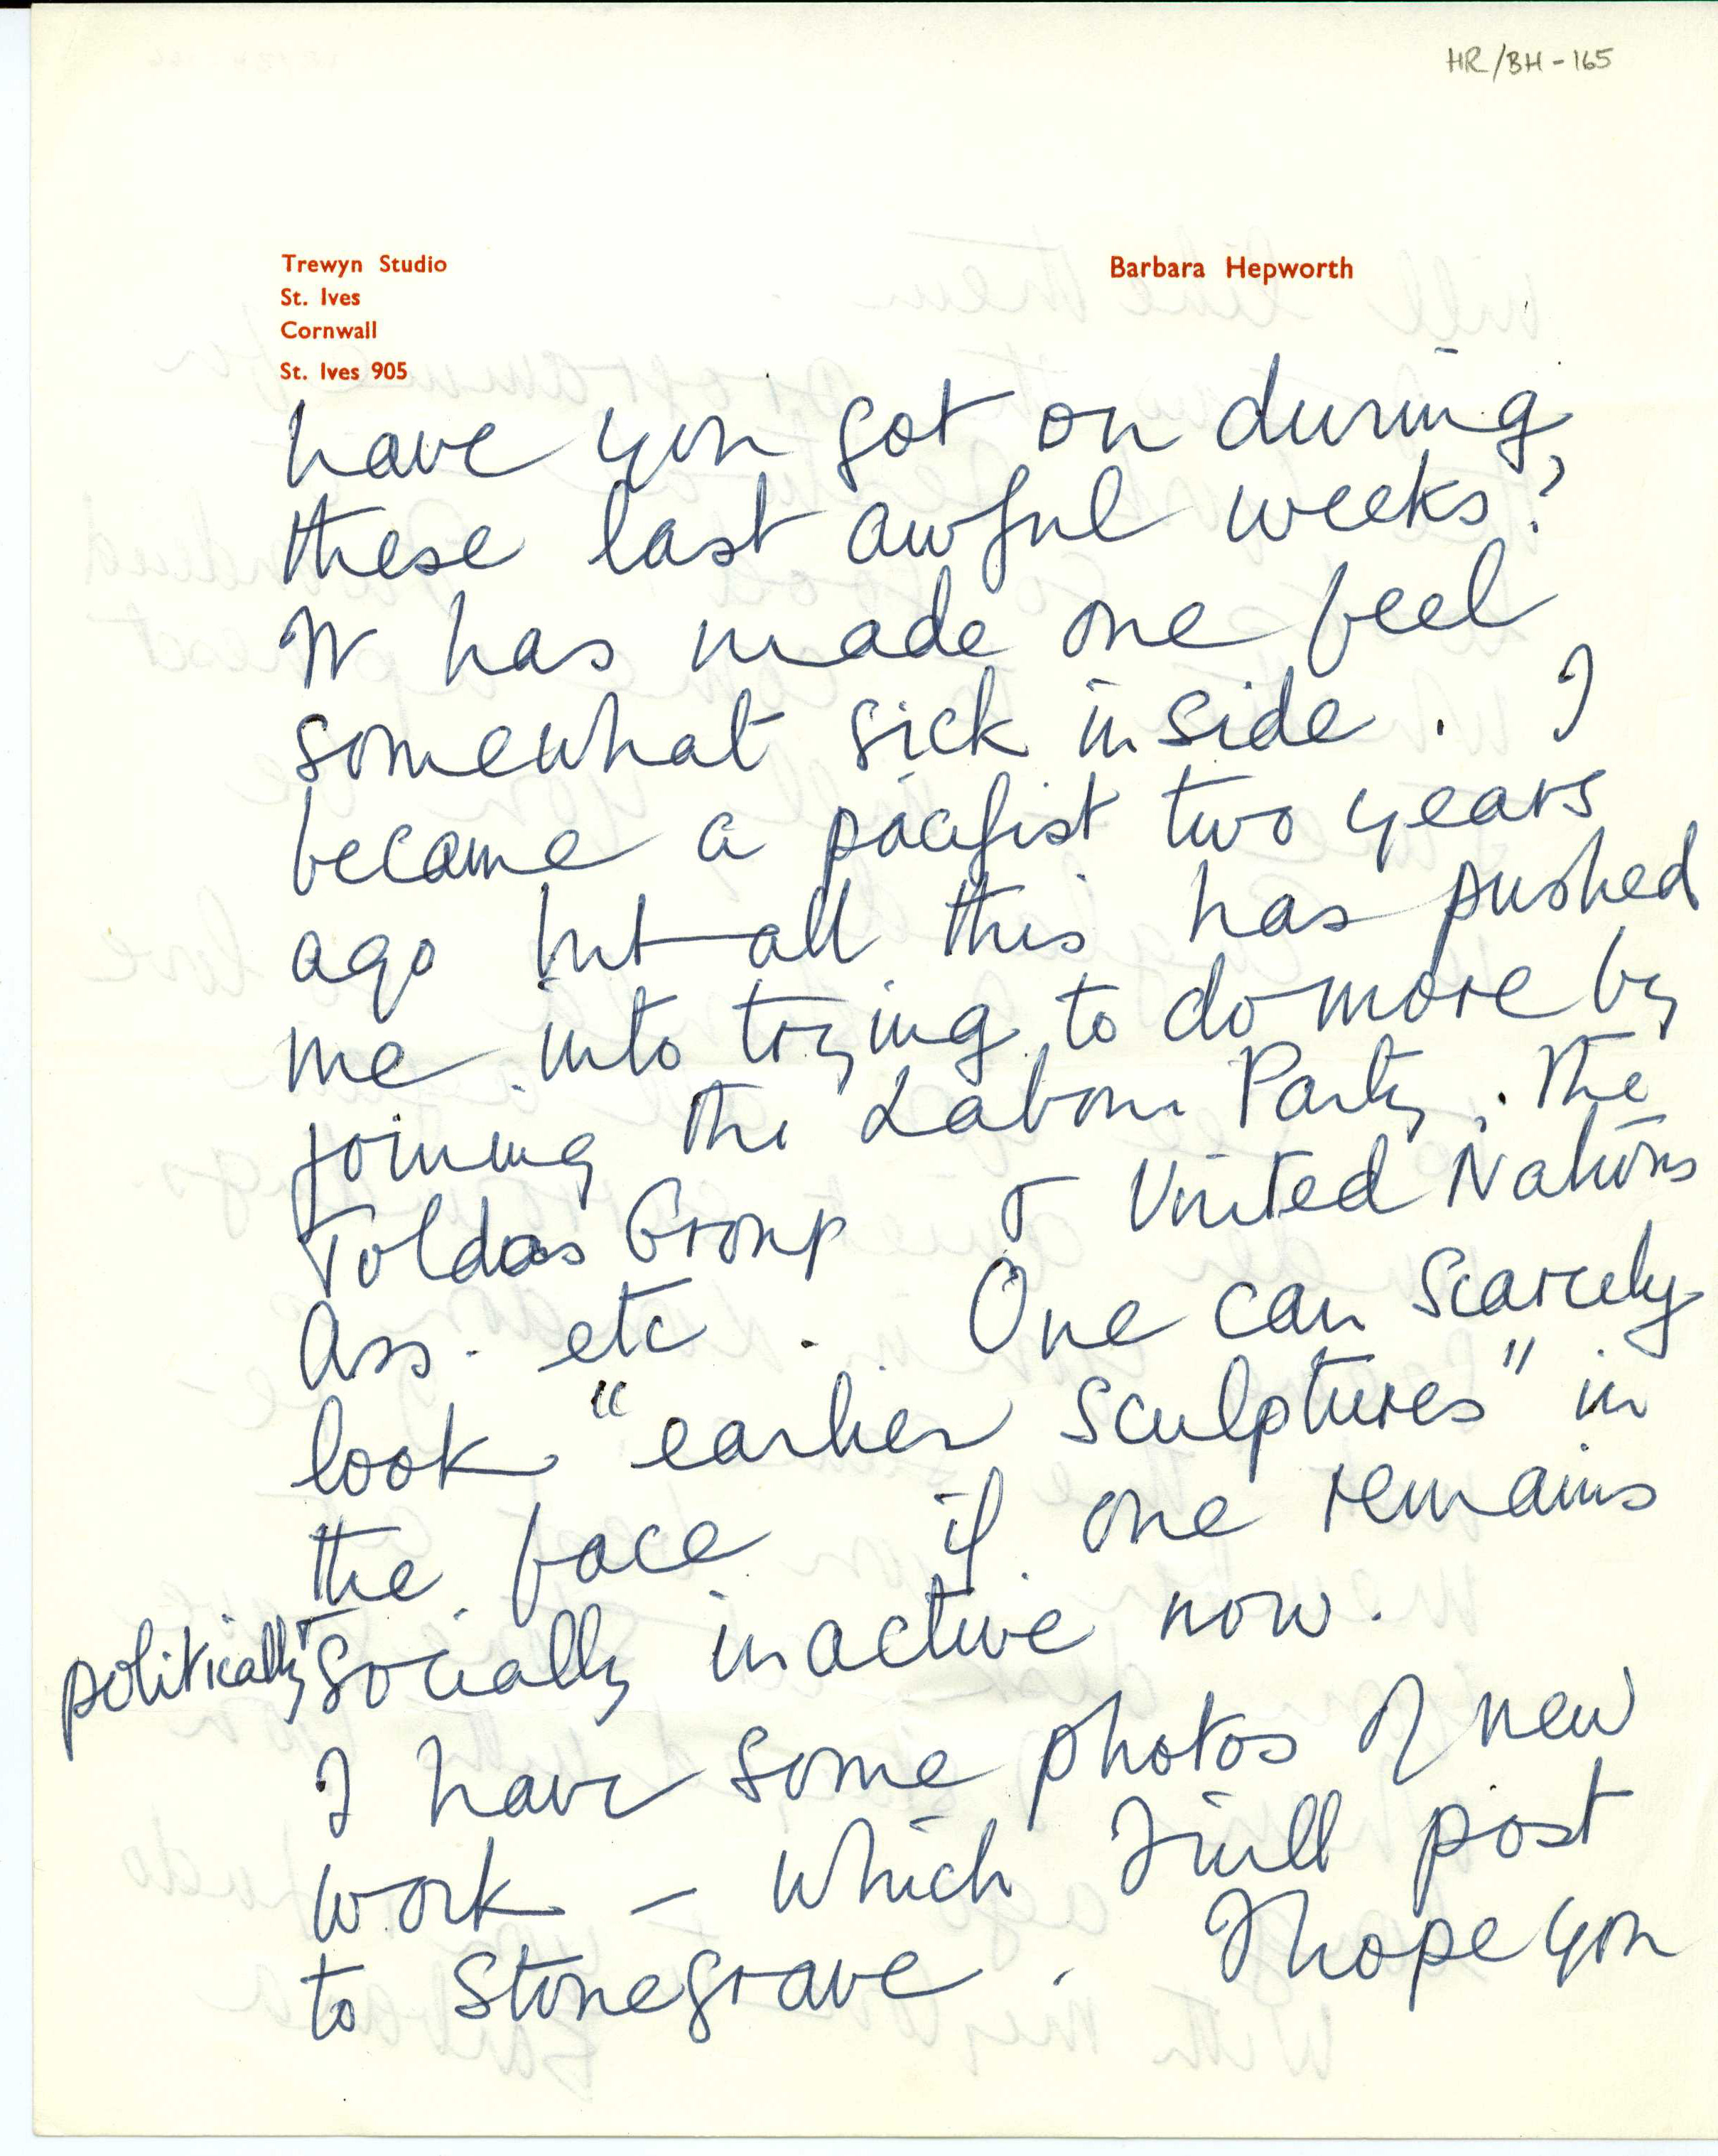 HR/BH-165
Trewyn Studio
St. Ives
Cornwall
St. Ives 905
Barbara Hepworth
have you got on during
these last awful weeks?
It has made one feel
somewhat sick inside. I
became a pacifist two years
ago but all this has pushed
me into trying to do more by
joining the Labour Party, the
Toldas Group & United Nations
Ass. etc. One can scarcely
look "earlier sculptures" in
the face if one remains
politically + socially inactive now.
I have some photos of new
work – which I will post
to Stonegrave. I hope you